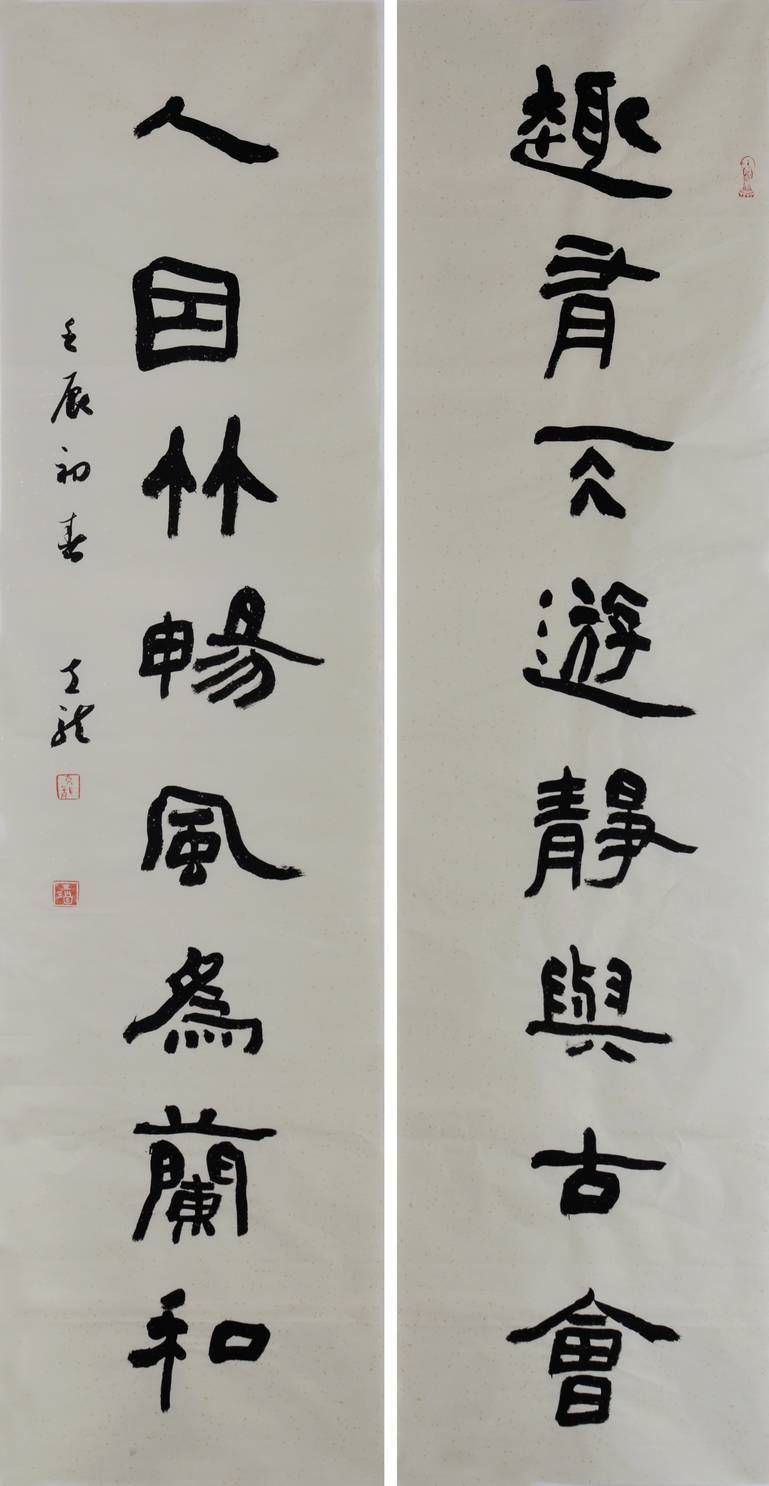 趣有天遊靜與古會
人因竹暢風為蘭和
壬辰初春